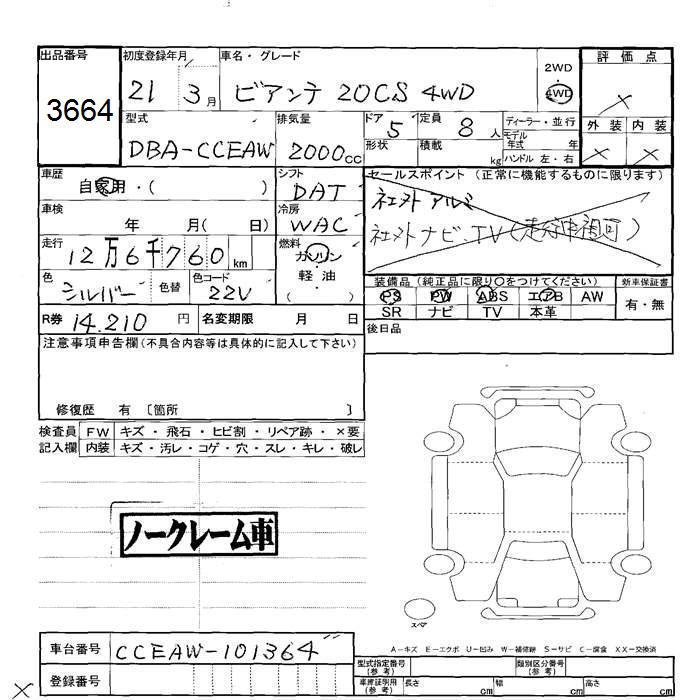 出品番号 初度登録年月 車名・グレード 2WD 評価点
3664 21 3月 ビアンテ 20CS 4WD 4WD ×
型式 排気量 ドア 定員 ディーラー・並行 外装 内装
DBA-CCEAW 2000cc 5 8人 モデル年式 年
形状 積載 kg ハンドル 左・右 × ×
車歴 シフト セールスポイント (正常に機能するものに限ります)
自家用・( ) DAT 社外アルミ
車検 冷房 社外ナビ、TV(走行中視可)
年 月( 日) WAC
走行 燃料
12万6千760km ガソリン
色 色コード 軽・油
シルバー 色替 22V ( )
装備品 (純正品に限り○をつけてください) 新車保証書
PS PW ABS エアB AW 有・無
SR ナビ TV 本革
R券 14.210円 名変期限 月 日
後日品
注意事項申告欄(不具合内容等は具体的に記入して下さい)
修復歴 有 〔箇所 〕
検査員 FW キズ・飛石・ヒビ割・リペア跡・×要
記入欄 内装 キズ・汚レ・コゲ・穴・スレ・キレ・破レ
ノークレーム車
スペア
A-キズ E-エクボ U-凹み W-補修跡 S-サビ C-腐食 XX-交換済
車台番号 CCEAW-101364
型式指定番号(参考) 類別区分番号(参考)
登録番号
車庫証明用(参考) 長さ cm 幅 cm 高さ cm
×